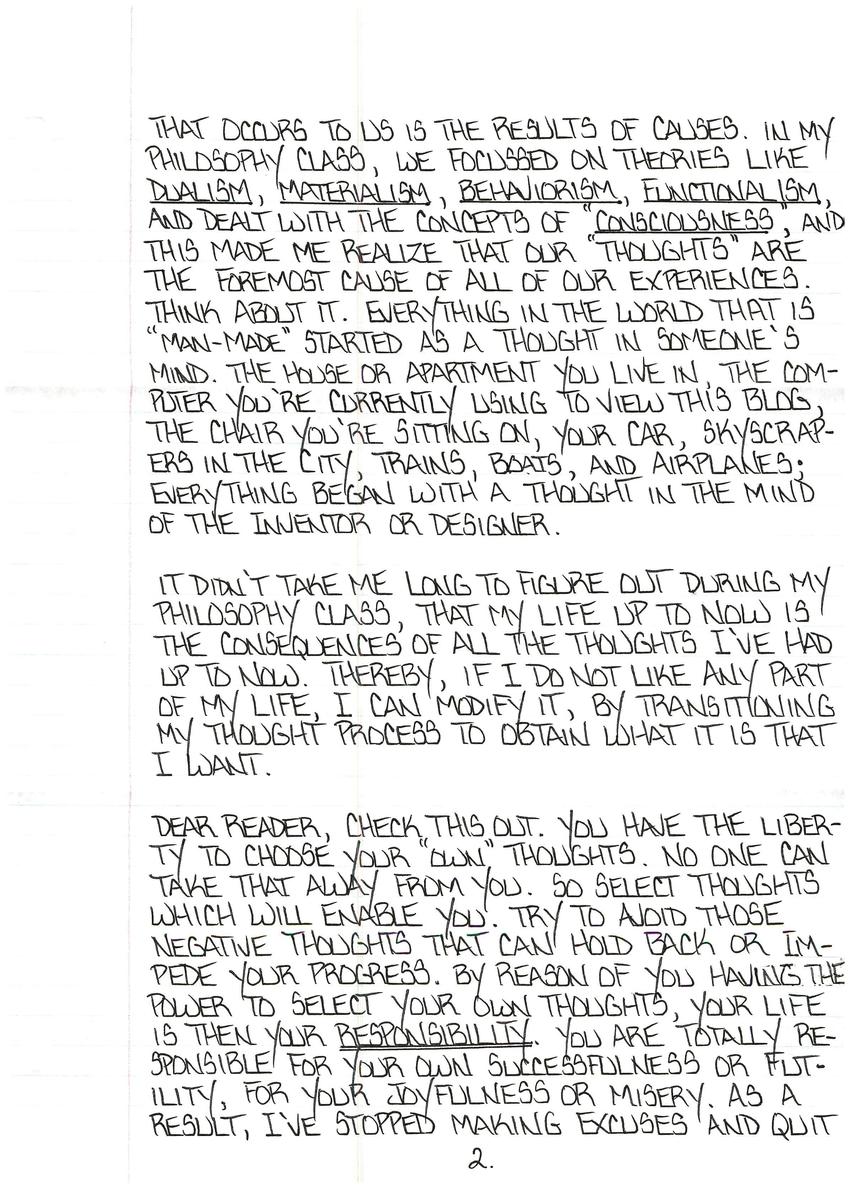 THAT OCCURS TO US IS THE RESULTS OF CAUSES. IN MY
PHILOSOPHY CLASS, WE FOCUSSED ON THEORIES LIKE
DUALISM, MATERIALISM, BEHAVIORISM, FUNCTIONALISM,
AND DEALT WITH THE CONCEPTS OF "CONSCIOUSNESS", AND
THIS MADE ME REALIZE THAT OUR "THOUGHTS" ARE
THE FOREMOST CAUSE OF ALL OF OUR EXPERIENCES.
THINK ABOUT IT. EVERYTHING IN THE WORLD THAT IS
"MAN-MADE" STARTED AS A THOUGHT IN SOMEONE'S
MIND. THE HOUSE OR APARTMENT YOU LIVE IN, THE COM-
PUTER YOU'RE CURRENTLY USING TO VIEW THIS BLOG,
THE CHAIR YOU'RE SITTING ON, YOUR CAR, SKYSCRAP-
ERS IN THE CITY, TRAINS, BOATS, AND AIRPLANES;
EVERYTHING BEGAN WITH A THOUGHT IN THE MIND
OF THE INVENTOR OR DESIGNER.
IT DIDN'T TAKE ME LONG TO FIGURE OUT DURING MY
PHILOSOPHY CLASS, THAT MY LIFE UP TO NOW IS
THE CONSEQUENCES OF ALL THE THOUGHTS I'VE HAD
UP TO NOW. THEREBY, IF I DO NOT LIKE ANY PART
OF MY LIFE, I CAN MODIFY IT, BY TRANSITIONING
MY THOUGHT PROCESS TO OBTAIN WHAT IT IS THAT
I WANT.
DEAR READER, CHECK THIS OUT. YOU HAVE THE LIBER-
TY TO CHOOSE YOUR "OWN" THOUGHTS. NO ONE CAN
TAKE THAT AWAY FROM YOU. SO SELECT THOUGHTS
WHICH WILL ENABLE YOU. TRY TO AVOID THOSE
NEGATIVE THOUGHTS THAT CAN HOLD BACK OR IM-
PEDE YOUR PROGRESS. BY REASON OF YOU HAVING THE
POWER TO SELECT YOUR OWN THOUGHTS, YOUR LIFE
IS THEN YOUR RESPONSIBILITY. YOU ARE TOTALLY RE-
SPONSIBLE FOR YOUR OWN SUCCESSFULNESS OR FUT-
ILITY, FOR YOUR JOYFULNESS OR MISERY. AS A
RESULT, I'VE STOPPED MAKING EXCUSES AND QUIT
2.